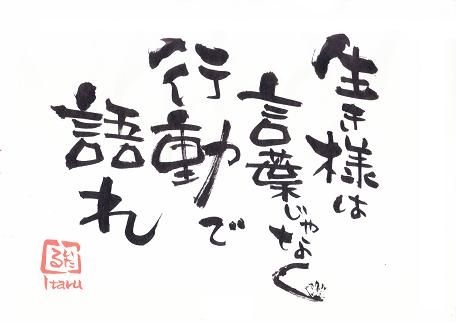 生き様は
言葉じゃなく
行動で
語れ
いたる
Itaru